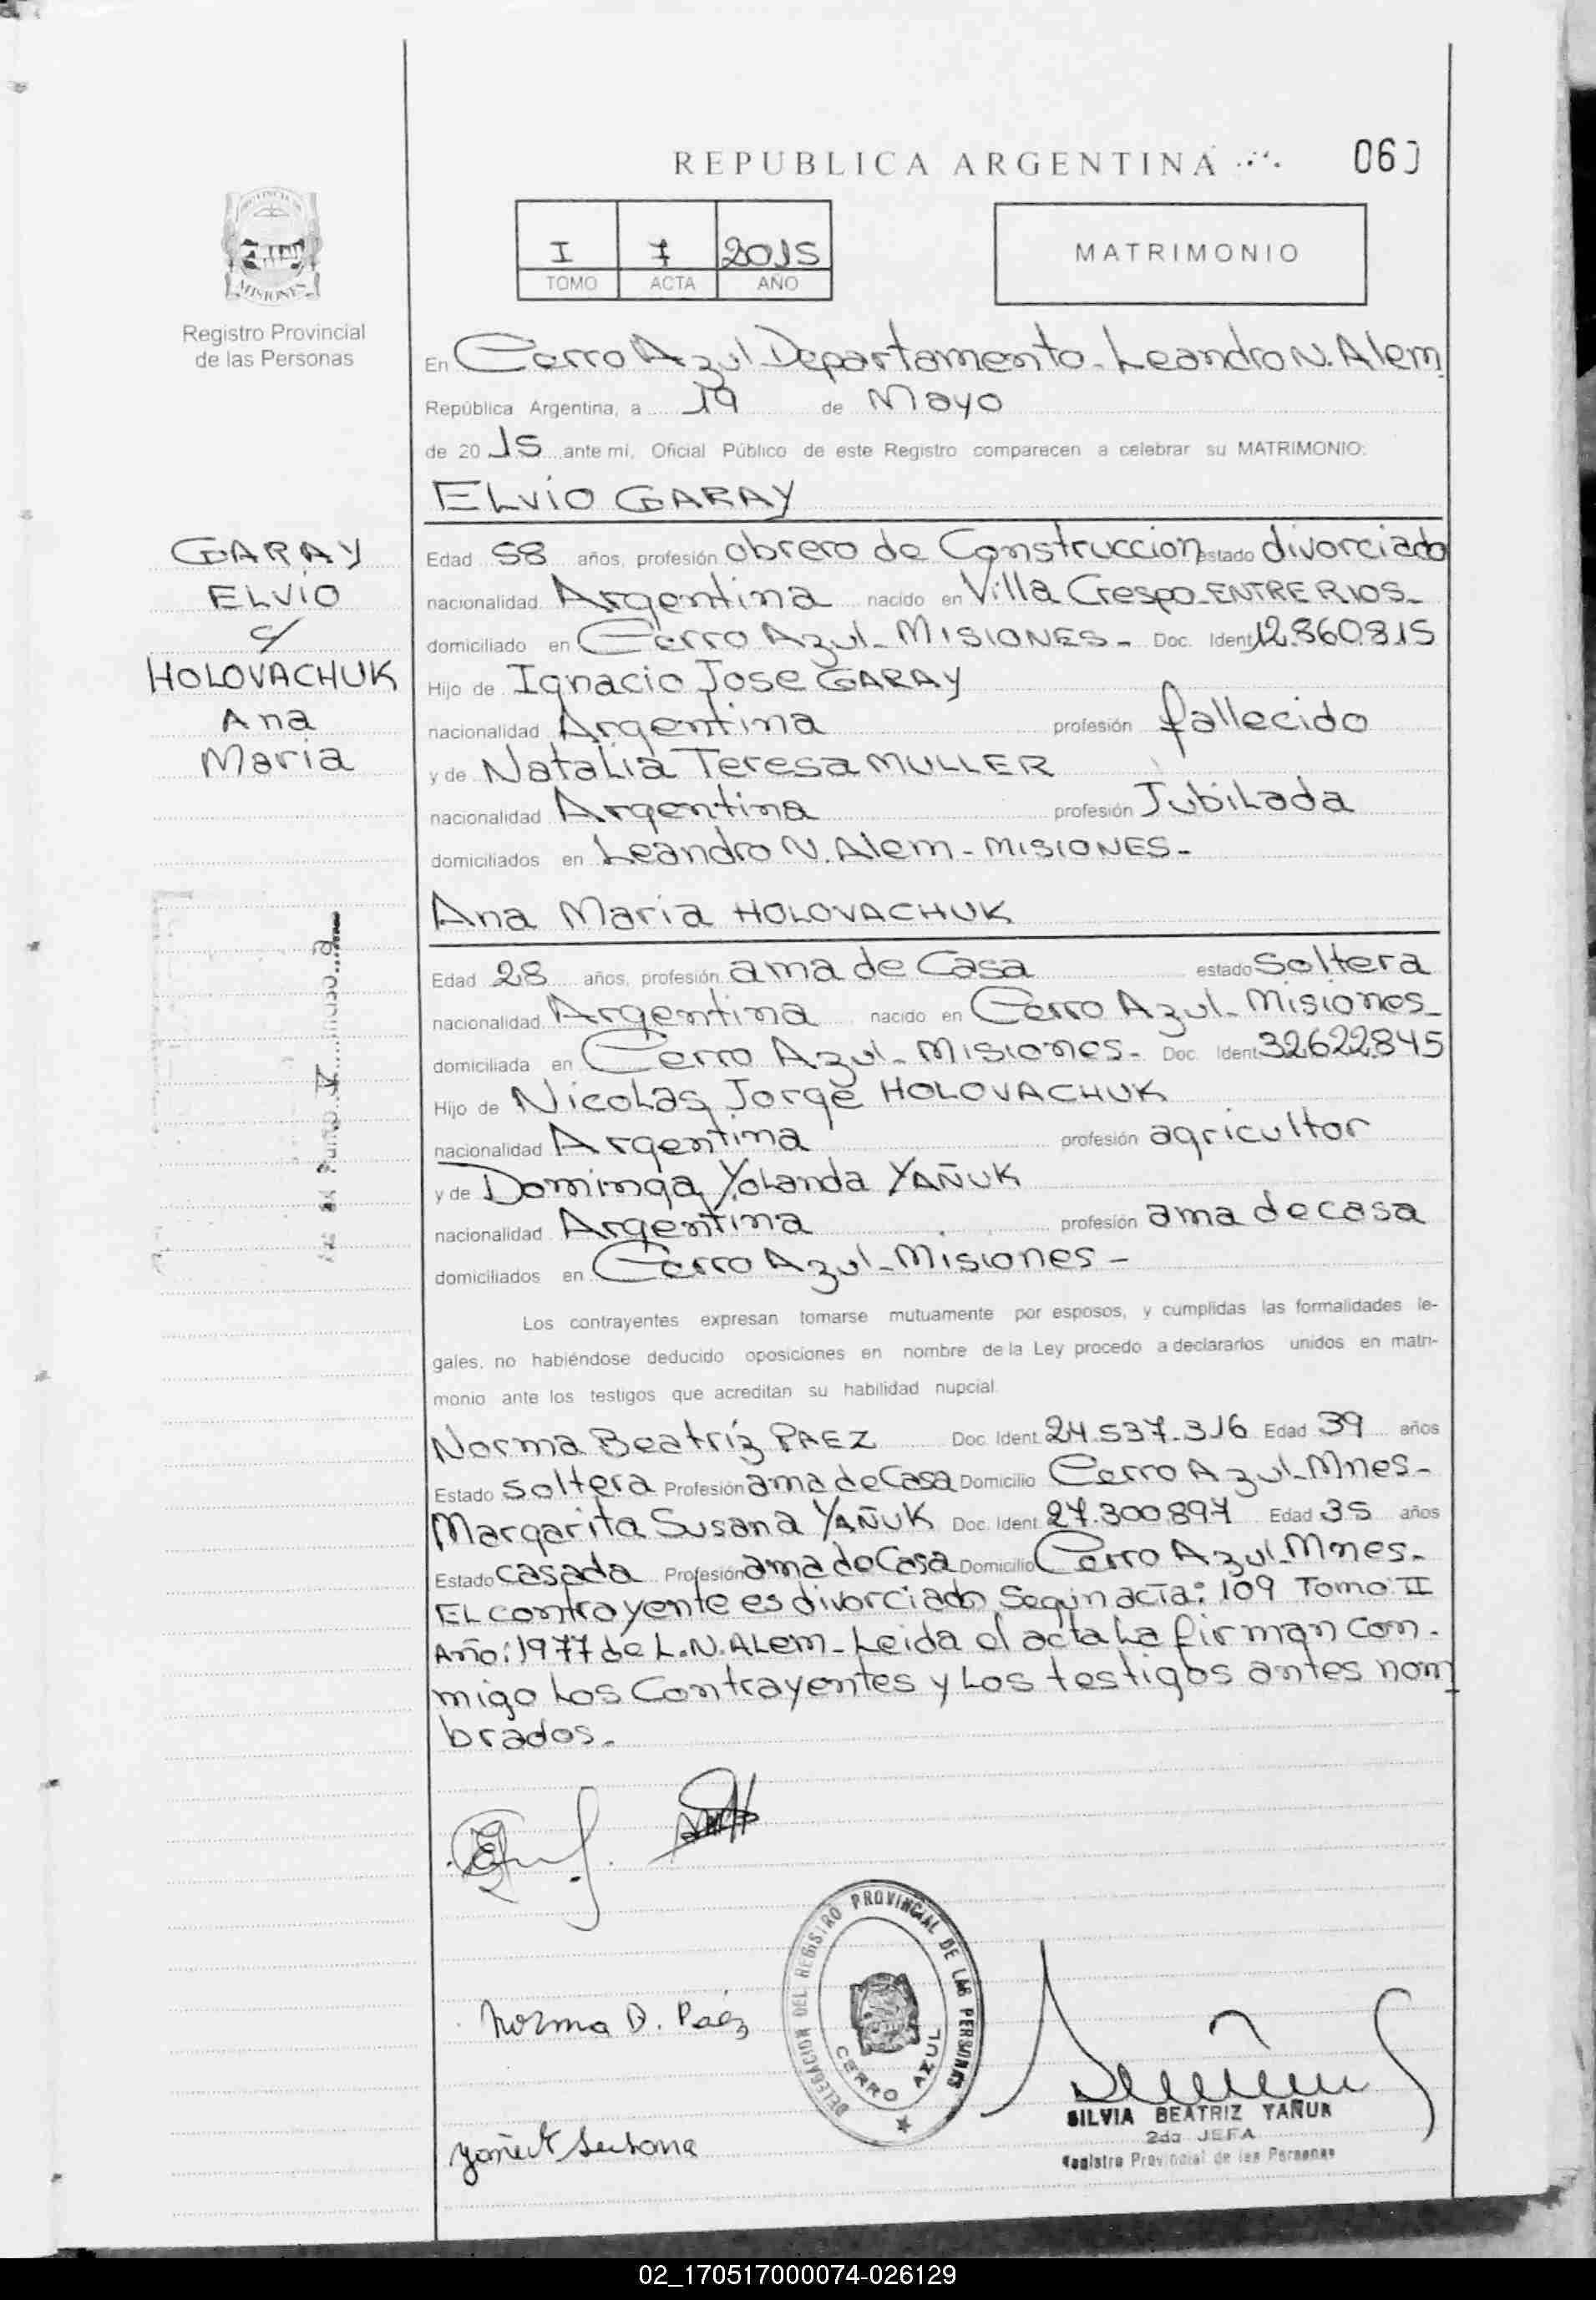 REPUBLICA ARGENTINA
I 7 2015
TOMO ACTA AÑO
MATRIMONIO
MISIONES
Registro Provincial
de las Personas
En Cerro Azul Departamento - Leandro N. Alem
República Argentina, a 19 de Mayo
de 2015 ante mi, Oficial Público de este Registro comparecen a celebrar su MATRIMONIO:
ELVIO GARAY
GARAY
ELVIO
c/
HOLOVACHUK
Ana
Maria
Edad 58 años, profesión obrero de Construccion estado divorciado
nacionalidad Argentina nacido en Villa Crespo - ENTRE RIOS -
domiciliado en Cerro Azul - MISIONES - Doc. Ident 12.860.815
Hijo de Ignacio Jose GARAY
nacionalidad Argentina profesión fallecido
y de Natalia Teresa MULLER
nacionalidad Argentina profesión Jubilada
domiciliados en Leandro N. Alem - MISIONES -
Ana Maria HOLOVACHUK
Edad 28 años, profesión ama de Casa estado Soltera
nacionalidad Argentina nacido en Cerro Azul - Misiones -
domiciliada en Cerro Azul - Misiones - Doc. Ident 32622845
Hijo de Nicolas Jorge HOLOVACHUK
nacionalidad Argentina profesión agricultor
y de Dominga Yolanda YAÑUK
nacionalidad Argentina profesión ama de casa
domiciliados en Cerro Azul - Misiones -
Los contrayentes expresan tomarse mutuamente por esposos, y cumplidas las formalidades le-
gales, no habiéndose deducido oposiciones en nombre de la Ley procedo a declararlos unidos en matri-
monio ante los testigos que acreditan su habilidad nupcial.
Norma Beatriz PAEZ Doc. Ident. 24.537.316 Edad 39 años
Estado Soltera Profesión ama de Casa Domicilio Cerro Azul - Mnes -
Margarita Susana YAÑUK Doc. Ident. 27.300.897 Edad 35 años
Estado Casada Profesión ama de Casa Domicilio Cerro Azul - Mnes -
El contrayente es divorciado Según acta: 109 Tomo: II
Año: 1977 de L.N. Alem - Leida el acta la firman con-
migo los Contrayentes y los testigos antes nom
brados.
DELEGACION DEL REGISTRO PROVINCIAL DE LAS PERSONAS
CERRO AZUL
Norma B. Paéz
SILVIA BEATRIZ YAÑUK
2da JEFA
Registro Provincial de las Personas
02_170517000074-026129